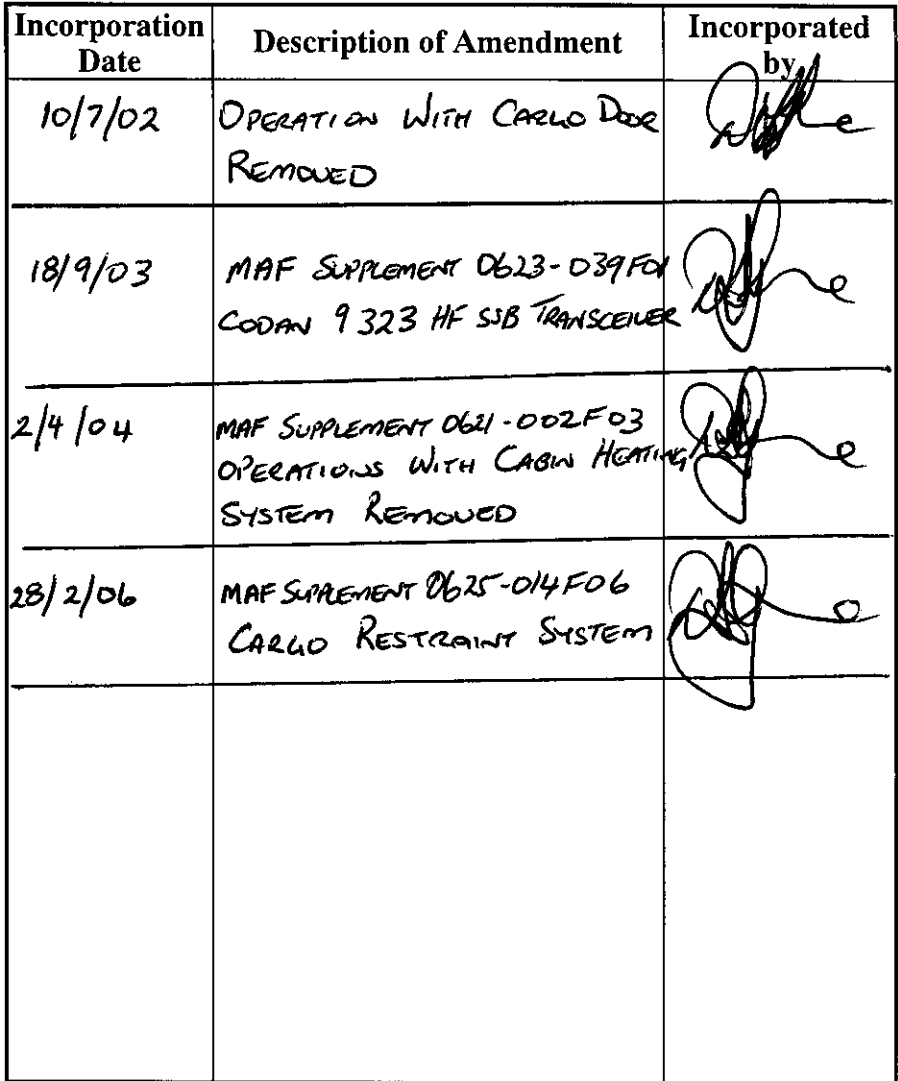 Incorporation Date
Description of Amendment
Incorporated by
10/7/02
OPERATION WITH CARGO DOOR
REMOVED
18/9/03
MAF SUPPLEMENT 0623-039F01
CODAN 9323 HF SSB TRANSCEIVER
2/4/04
MAF SUPPLEMENT 0621-002F03
OPERATIONS WITH CABIN HEATING
SYSTEM REMOVED
28/2/06
MAF SUPPLEMENT 0625-014F06
CARGO RESTRAINT SYSTEM